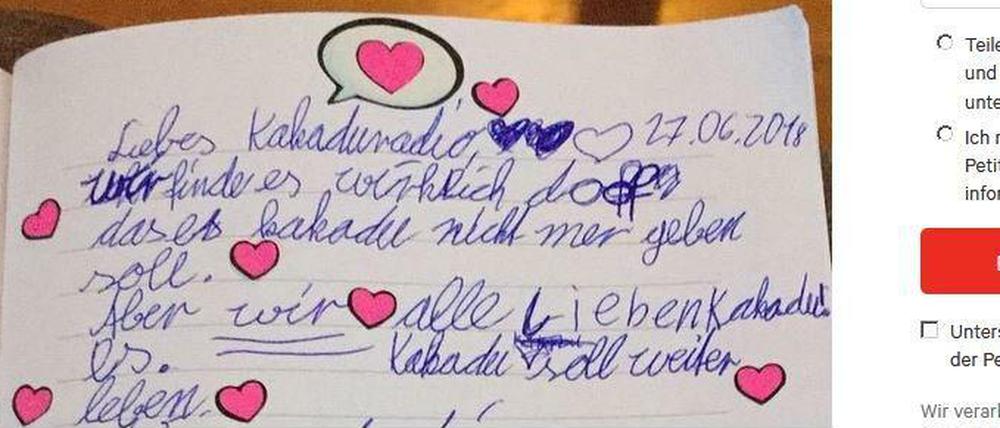 Liebes Kakaduradio, 27.06.2018
wir finde es wirklich doof
das es kakadu nicht mer geben
soll.
Aber wir alle LiebenKakadu!
es. Kakadu soll weiter
leben.
Teile
und
unte
Ich
Petit
infor
Unters
der Pe
Wir verarl